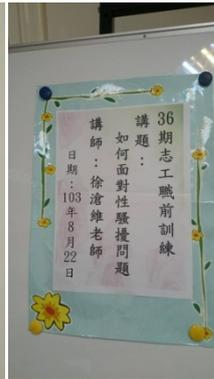 36期志工職前訓練
講題：
如何面對性騷擾問題
講師：徐滄維老師
日期：103年8月22日